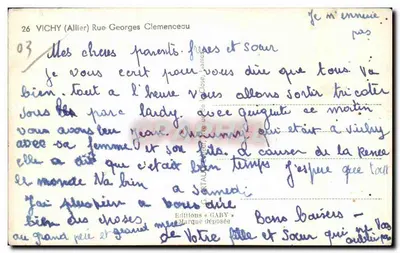 26 VICHY (Allier) Rue Georges Clemenceau
Je m'ennuie
pas
03
Mes chers parents frères et Sœur
Je vous écrit pour vous dire que tous va
bien. Tout à l'heure nous allons sortir tricoter
sous les parc avec ce matin
nous avons vu Jean qui était à Vichy
avec sa femme et son fils. à cause de la
elle a dit que c'était bon temps J'espère que tout
le monde Va bien à Samedi
J'ai plus rien à vous dire
bien des choses Editions "GABY" Bons baisers -
au grand père et grand mère Marque déposée
de Votre fille et Sœur qui ne Vous
oublie pas